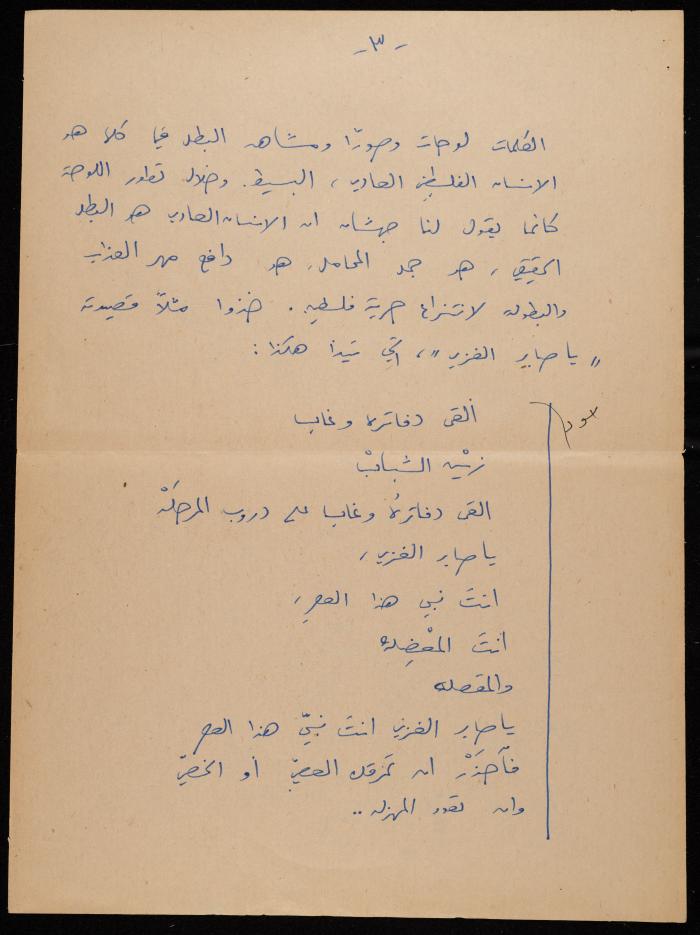 - ٣ -
الكلمات لوحات وصورًا ومشاهد البطل فيها كلها هو
الانسان الفلسطيني العادي، البسيط. وخلال تطور اللوحة
كأنما يقول لنا جهشان ان الانسان العادي هو البطل
الحقيقي، هو جمل المحامل، هو دافع مهر العذاب
والبطولة لانتزاع حرية فلسطين. خذوا مثلاً قصيدته
"يا صابر الغزي"، التي تبدأ هكذا:
ألقى دفاتره وغاب
زيْن الشبابْ
القى دفاترهُ وغاب على دروب المرحلَهْ
يا صابر الغزي،
انتَ نبي هذا العصرِ،
انتَ المعْضِله
والمقصله
يا صابر الغزي انتَ نبيّ هذا العصر
فأحذَرْ ان تمزقك العصيّ أو الخصيّ
وان تقود المهزله..